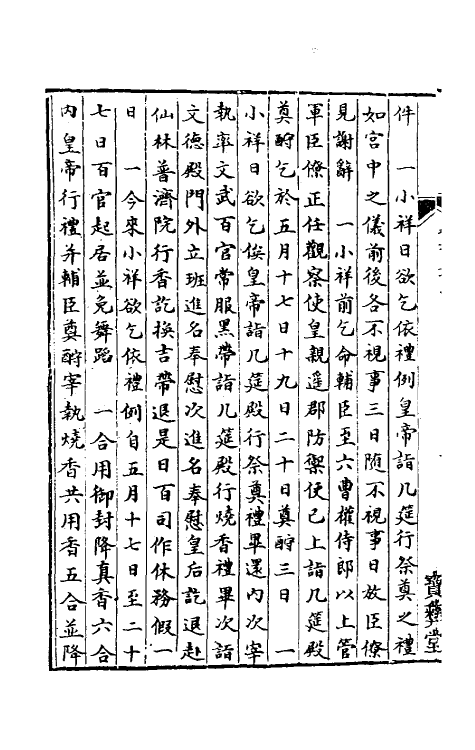 件　一小祥日欲乞依禮例皇帝詣几筵行祭奠之禮
如宮中之儀前後各不視事三日随不視事日放臣僚
見謝辭　一小祥前乞命輔臣至六曹權侍郎以上管
軍臣僚正任觀察使皇親遥郡防禦使已上詣几筵殿
奠酹乞於五月十七日十九日二十日奠酹三日　一
小祥日欲乞俟皇帝詣几筵殿行祭奠禮畢還内次宰
執率文武百官常服黑帶詣几筵殿行燒香禮畢次詣
文德殿門外立班進名奉慰次進名奉慰皇后訖退赴
仙林普濟院行香訖换吉帶退是日百司作休務假一
日　一今來小祥欲乞依禮例自五月十七日至二十
七日百官起居並免舞蹈　一合用御封降真香六合
内皇帝行禮并輔臣奠酹宰執燒香共用香五合並降
寶彝堂